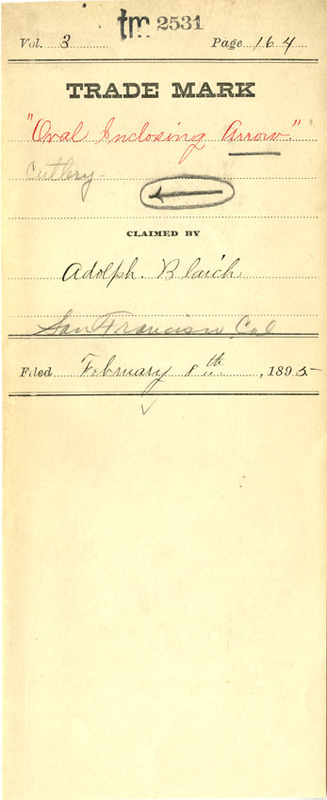 tm 2531
Vol. 3 Page 164
TRADE MARK
"Oval Inclosing Arrow."
Cutlery
CLAIMED BY
Adolph. Blaich
San Francisco, Cal
Filed February 8th, 1895